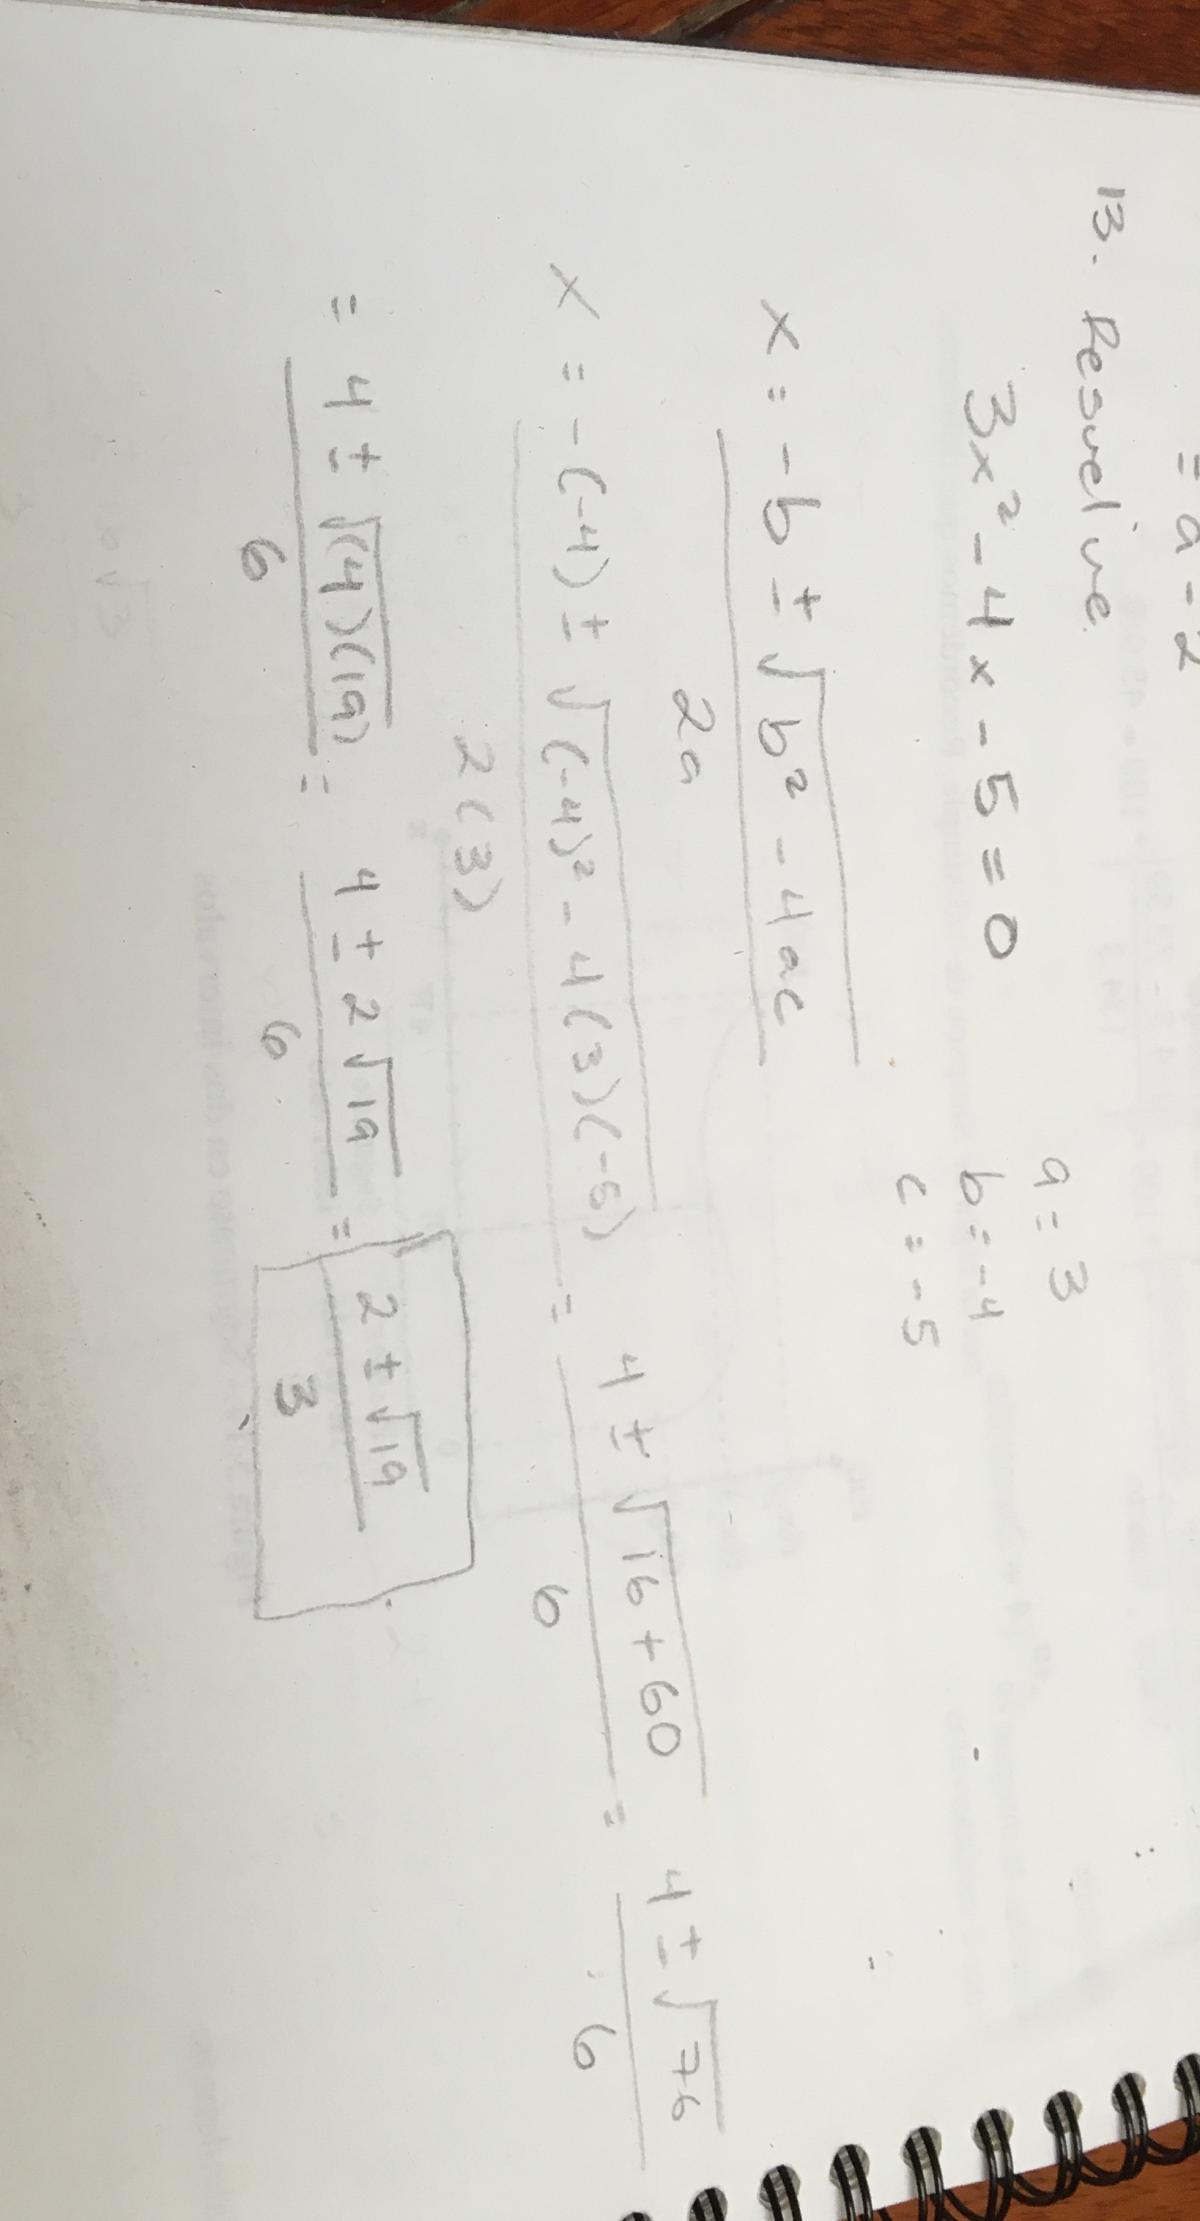 = a - 2
13. Resuelve
3x² - 4x - 5 = 0
a = 3
b = -4
c = -5
x = -b ± √b² - 4ac
2a
x = -(-4) ± √(-4)² - 4(3)(-5) = 4 ± √16 + 60 = 4 ± √76
2(3) 6 6
= 4 ± √(4)(19) = 4 ± 2√19 = 2 ± √19
6 6 3